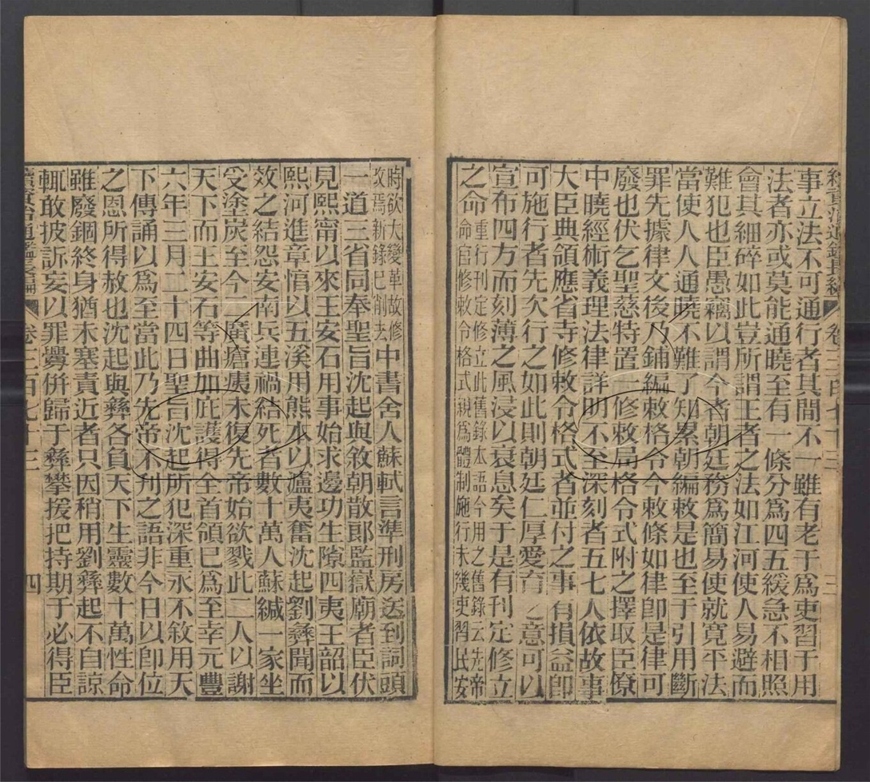 續資治通鑑長編 卷三百七十三 三
事立法不可通行者其間不一雖有老于爲吏習于用
法者亦或莫能通曉至有一條分爲四五緩急不相照
會其細碎如此豈所謂王者之法如江河使人易避而
難犯也臣愚竊以謂今者朝廷務爲簡易使就寬平法
當使人人通曉不難了知累朝編敕是也至于引用斷
罪先據律文後乃鋪編敕格令今敕條如律卽是律可
廢也伏乞聖慈特置一修敕局格令式附之擇取臣僚
中曉經術義理法律詳明不至深刻者五七人依故事
大臣典領應省寺修敕令格式者並付之事有損益卽
可施行者先次行之如此則朝廷仁厚愛育之意可以
宣布四方而刻薄之風浸以衰息矣于是有刊定修立
之命重行刊定修立此舊錄本語今用之舊錄云先帝
命官修敕令格式視爲體制施行未幾吏習民安
時欲大變革故修
改焉新錄已削去中書舍人蘇軾言準刑房送到詞頭
一道三省同奉聖旨沈起與敘朝散郞監嶽廟者臣伏
見熙甯以來王安石用事始求邊功生隙四夷王韶以
熙河進章惇以五溪用熊本以瀘夷奮沈起劉彝聞而
效之結怨安南兵連禍結死者數十萬人蘇緘一家坐
受塗炭至今二廣瘡痍未復先帝始欲戮此二人以謝
天下而王安石等曲加庇護得全首領已爲至幸元豐
六年三月二十四日聖旨沈起所犯深重永不敘用天
下傳誦以爲至當此乃先帝不刊之語非今日以卽位
之恩所得赦也沈起與彝各負天下生靈數十萬性命
雖廢錮終身猶未塞責近者只因稍用劉彝起不自諒
輒敢披訴妄以罪釁併歸于彝攀援把持期于必得臣
續資治通鑑長編 卷三百七十三 四